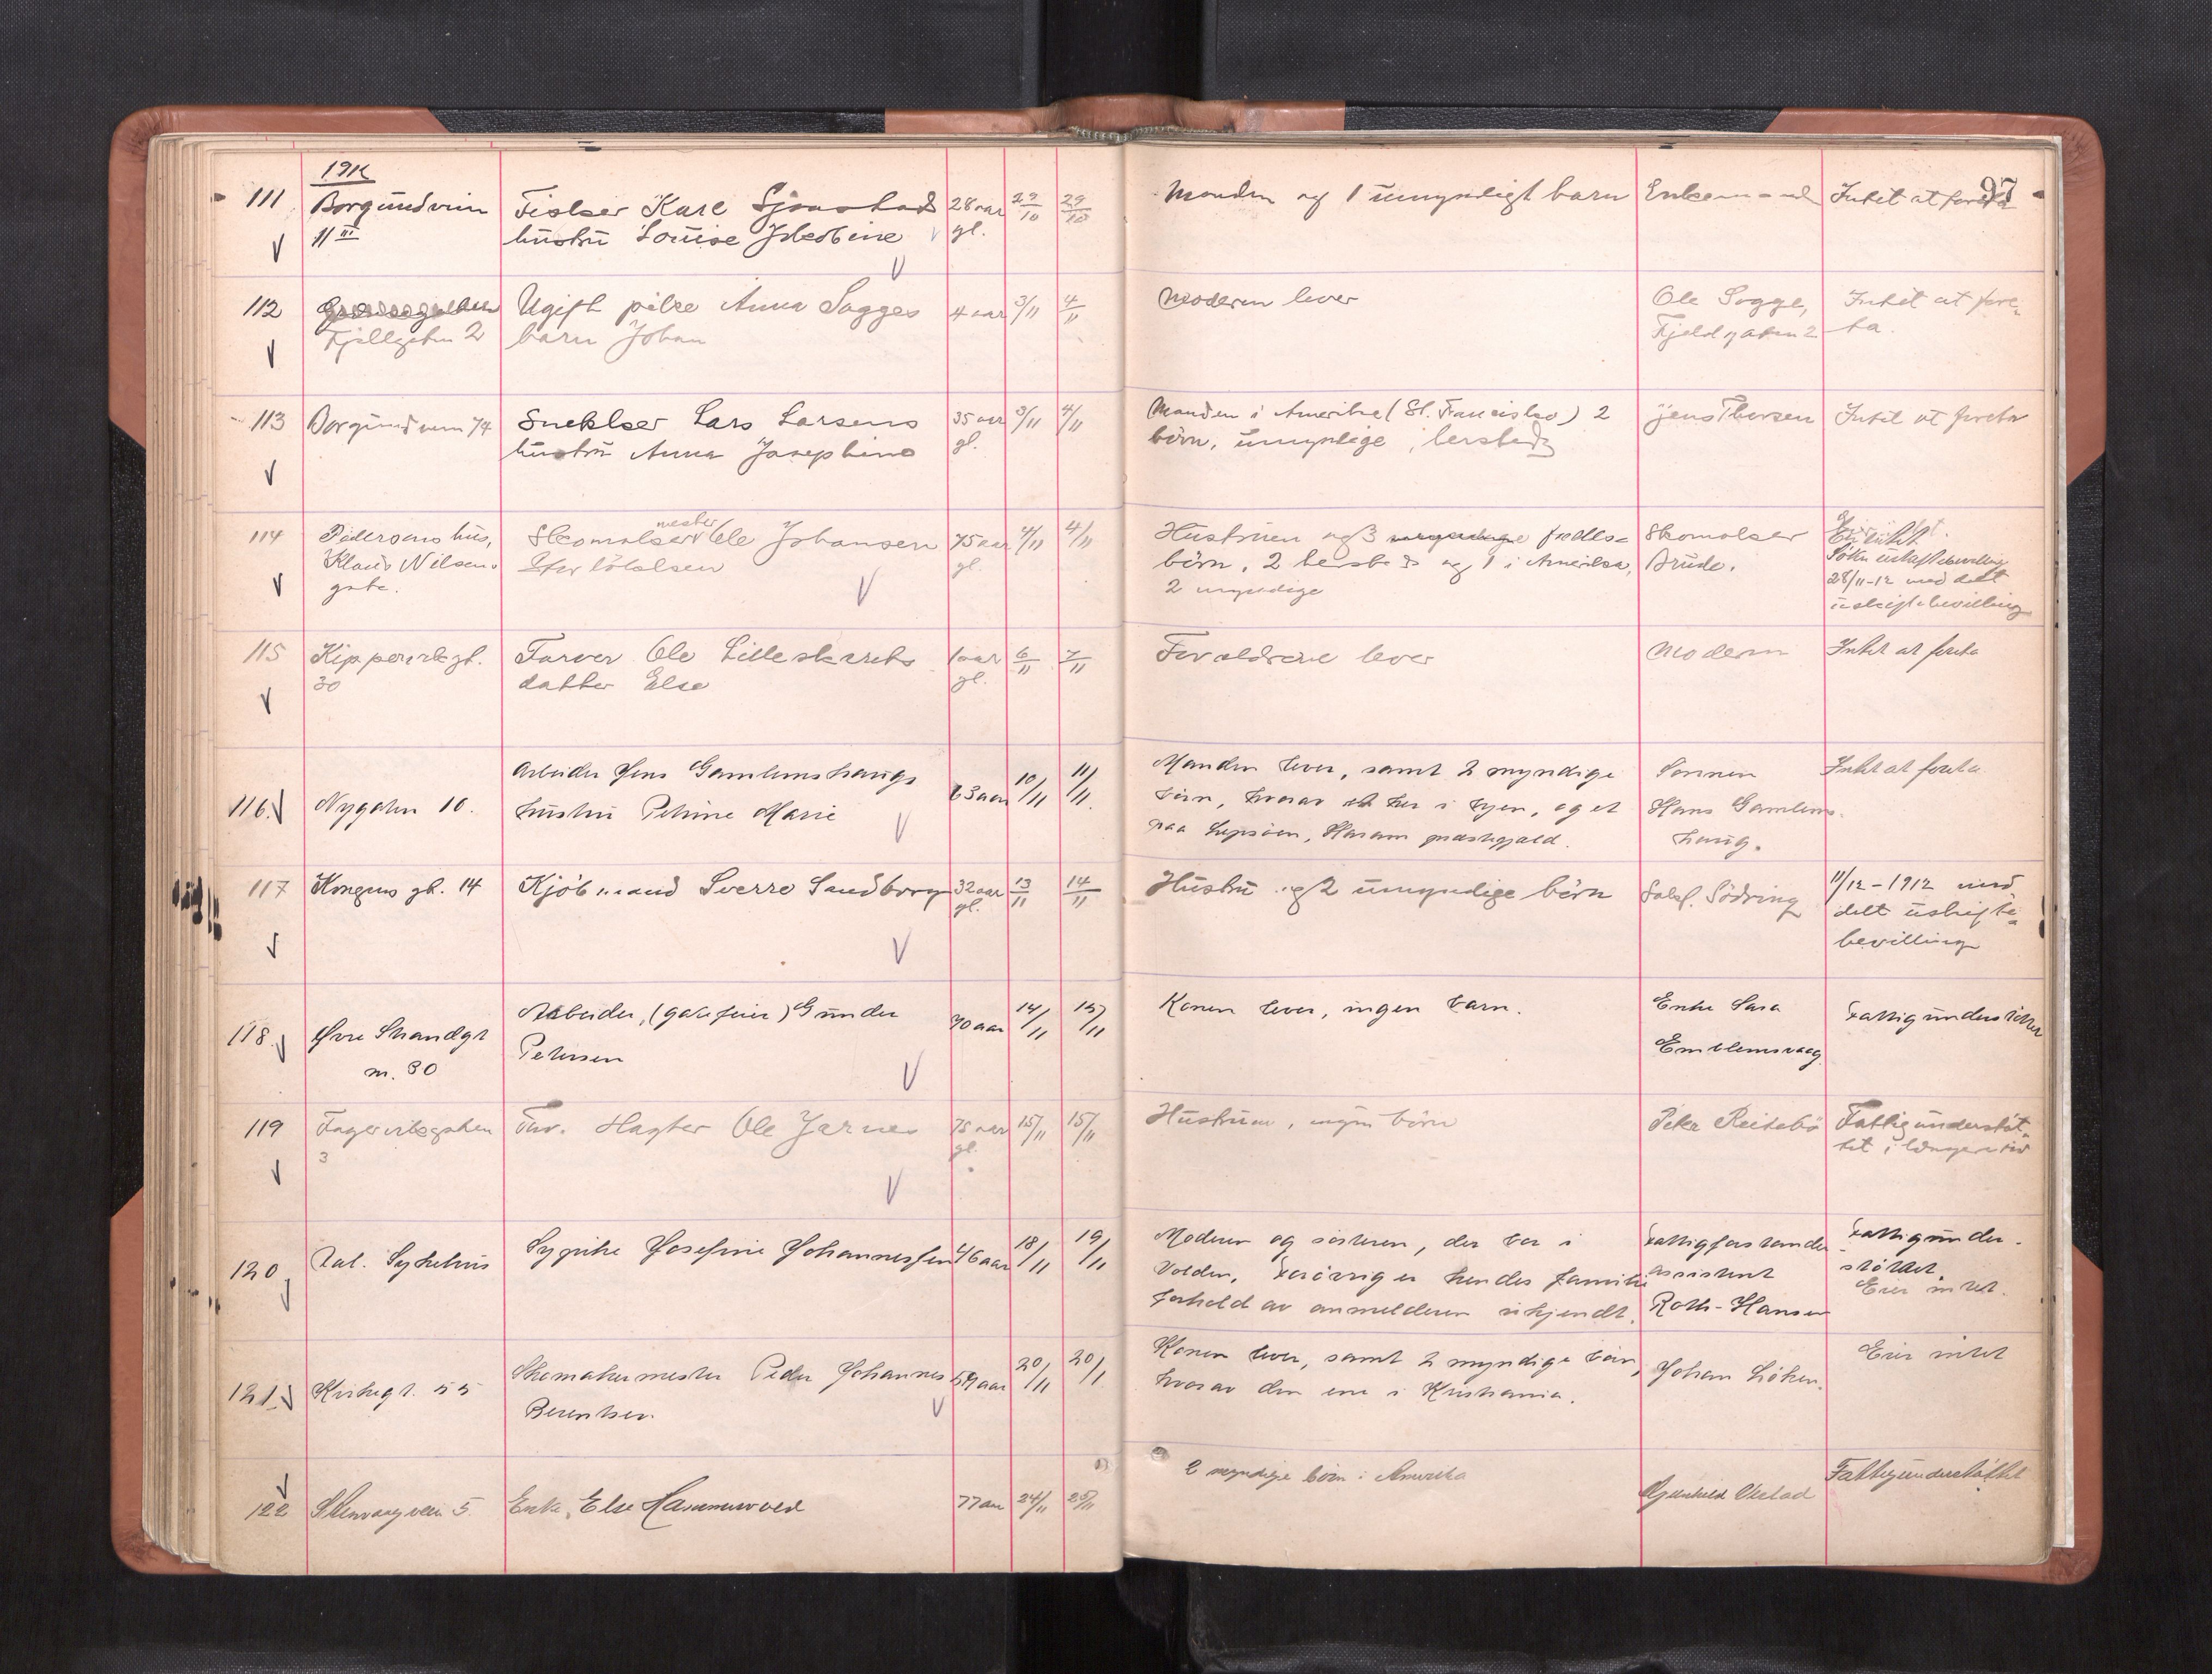 1912
97
111 Borgundvein Fisker Karl Sjaastad 28 aar 29/10 29/10 Manden og 1 umyndigt barn Enkemand Intet at foreta
11 III hustru Louise gl.
112 Ugift pike Anna Sagges 4 aar 3/11 4/11 Moderen lever Ole Sogge, Intet at fore-
Fjellgaten 2 barn Johan Fjeldgaten 2 ta.
113 Borgundvein 74 Snekker Lars Larsens 35 aar 3/11 4/11 Manden i Amerika (St. Francisko) 2 Jens Thorsen Intet at foreta
hustru Anna Josephine gl. börn, umyndige, hersteds
114 Pedersens hus, Skomaker mester Ole Johansen 75 aar 4/11 4/11 Hustruen og 3 fælles- Skomaker
Klaus Nilsens gl. börn, 2 hersteds og 1 i Amerika, Brude. Söker uskiftebevilling
gate. 2 myndige 28/11-12 meddelt
uskiftebevilling
115 Kipperviksgt. Farver Ole Lilleskarets 1 aar 6/11 7/11 Forældrene lever Moderen Intet at foreta
30 datter Else gl.
Arbeider Jens Gamlemshaugs Manden lever, samt 2 myndige Sønnen Intet at foreta
116. Nygaten 10. hustru Petrine Marie 63 aar 10/11 11/11 børn, hvorav et her i byen, og et Hans Gamlems-
paa Lepsøen, Haram prestegjeld. haug.
117 Kongens gt. 14 Kjöbmand Sverre Sandborg 32 aar 13/11 14/11 Hustru og 2 umyndige börn Sakf. Södring 11/12-1912 med
gl. delt uskifte-
bevilling
118. Øvre Strandgt Arbeider, (gatefeier) Gunder 70 aar 14/11 15/11 Konen lever, ingen barn. Enke Sara Fattigunderstøttet
m. 30 Petersen Emblemsvaag
119 Fagerviksgaten Ole Jarnes 75 aar 15/11 15/11 Hustruen, ingen börn Peter Reitebö Fattigunderstöt-
3 gl. tet i længere tid
120 Kat. Sykehus Sypike Josefine Johannessen 46 aar 18/11 19/11 Moderen og søsteren, der bor i Fattigforstander Fattigunder-
Volden, forøvrig er hendes familie assistent støttet
forhold av anmelderen ukjendt. Roth-Hansen Eier intet.
121. Kirkegt. 55 Skomakermester Peder Johannes 59 aar 20/11 20/11 Konen lever, samt 2 myndige børn, Johan Løken. Eier intet
Berentsen. hvorav den ene i Kristiania.
122 5. Enke Else 77 aar 24/11 25/11 2 myndige börn i Amerika Fattigunderstöttet